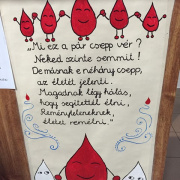 „Mi ez a pár csepp vér?
Neked szinte semmi!
De másnak e néhány csepp,
az életet jelenti.
Magadnak légy hálás,
hogy segítettél élni,
Reményteleneknek,
életet remélni."